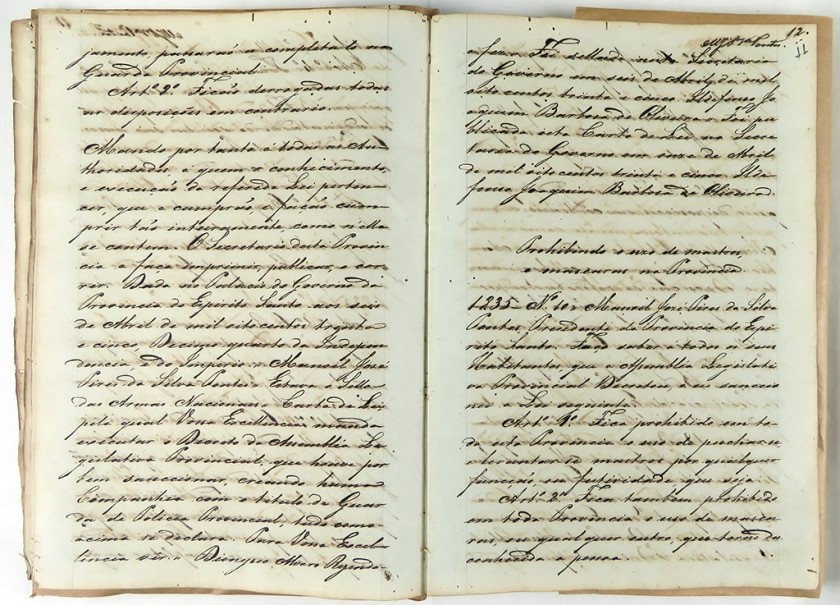 jamento, passará a completal-o na
Guarda Provincial.
Artº 2º Ficão derrogadas todas
as disposições em contrario.
Mando por tanto á todas as Au-
thoridades, a quem o conhecimento,
e execução da referida Lei perten-
cer, que a cumprão, e fação cum-
prir tão inteiramente, como n'ella
se contem. O Secretario desta Provin-
cia a faça imprimir, publicar, e cor-
rer. Dada no Palacio do Governo da
Provincia do Espirito Santo aos seis
de Abril de mil oito centos trinta
e cinco, Decimo quarto da Indepen-
dencia, e do Imperio. Manoel José
Pires da Silva Pontes. Estava o Sello
das Armas Nacionaes. Carta de Lei,
pela qual Vossa Excellencia manda
executar o Decreto da Assembléa Le-
gislativa Provincial, que houve por
bem sanccionar, creando huma
Companhia com o titulo de Guar-
da de Policia Provincial, tudo como
acima se declara. Para Vossa Excel-
lencia ver.
12.
11
a fez. Foi sellada nesta Secretaria
do Governo em seis de Abril de mil
oito centos trinta e cinco. Ildefonso Jo-
aquim Barbosa de Oliveira. Foi pu-
blicada esta Carta de Lei na Secre-
taria do Governo em onze de Abril
de mil oito centos trinta e cinco. Ilde-
fonso Joaquim Barbosa de Oliveira.
Prohibindo o uso de mastros,
e mascaras na Provincia
1835 Nº 10 Manoel José Pires da Silva
Pontes, Presidente da Provincia do Espi-
rito Santo. Faço saber a todos os seus
Habitantes, que a Assembléa Legislati-
va Provincial Decretou, e eu sanccio-
nei a Lei seguinte.
Artº 1º Fica prohibido em to-
da esta Provincia o uso de puchar-se
e levantar-se mastros por qualquer
funcção, ou festividade que seja.
Artº 2º Fica tambem prohibido
em toda Provincia o uso de masca-
ras, ou qual quer outro, que torne des-
conhecida a pessoa.